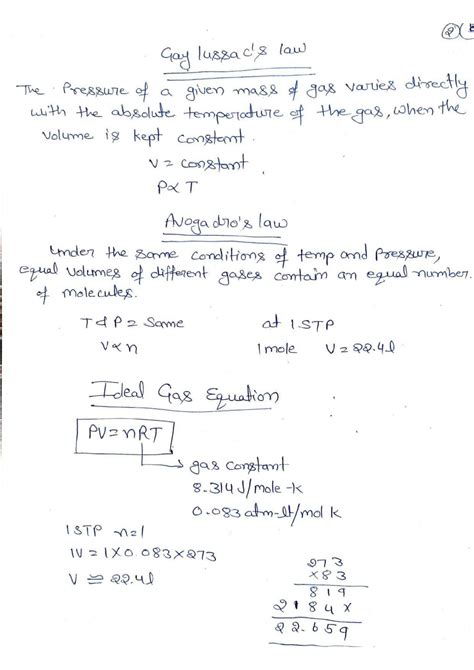 ②
Gay lussac's law
The Pressure of a given mass of gas varies directly
with the absolute temperature of the gas, when the
volume is kept constant.
V = constant
P∝ T
Avogadro's law
under the same conditions of temp and Pressure,
equal volumes of different gases contain an equal number
of molecules.
T & P = Same
at 1 STP
V∝ n
1 mole V = 22.4l
Ideal Gas Equation
PV = nRT
gas constant
8.314 J/mole-k
0.083 atm-lt/mol k
1 STP n=1
1V = 1X0.083X273
V ≅ 22.4l
273
X83
819
2184X
22.659